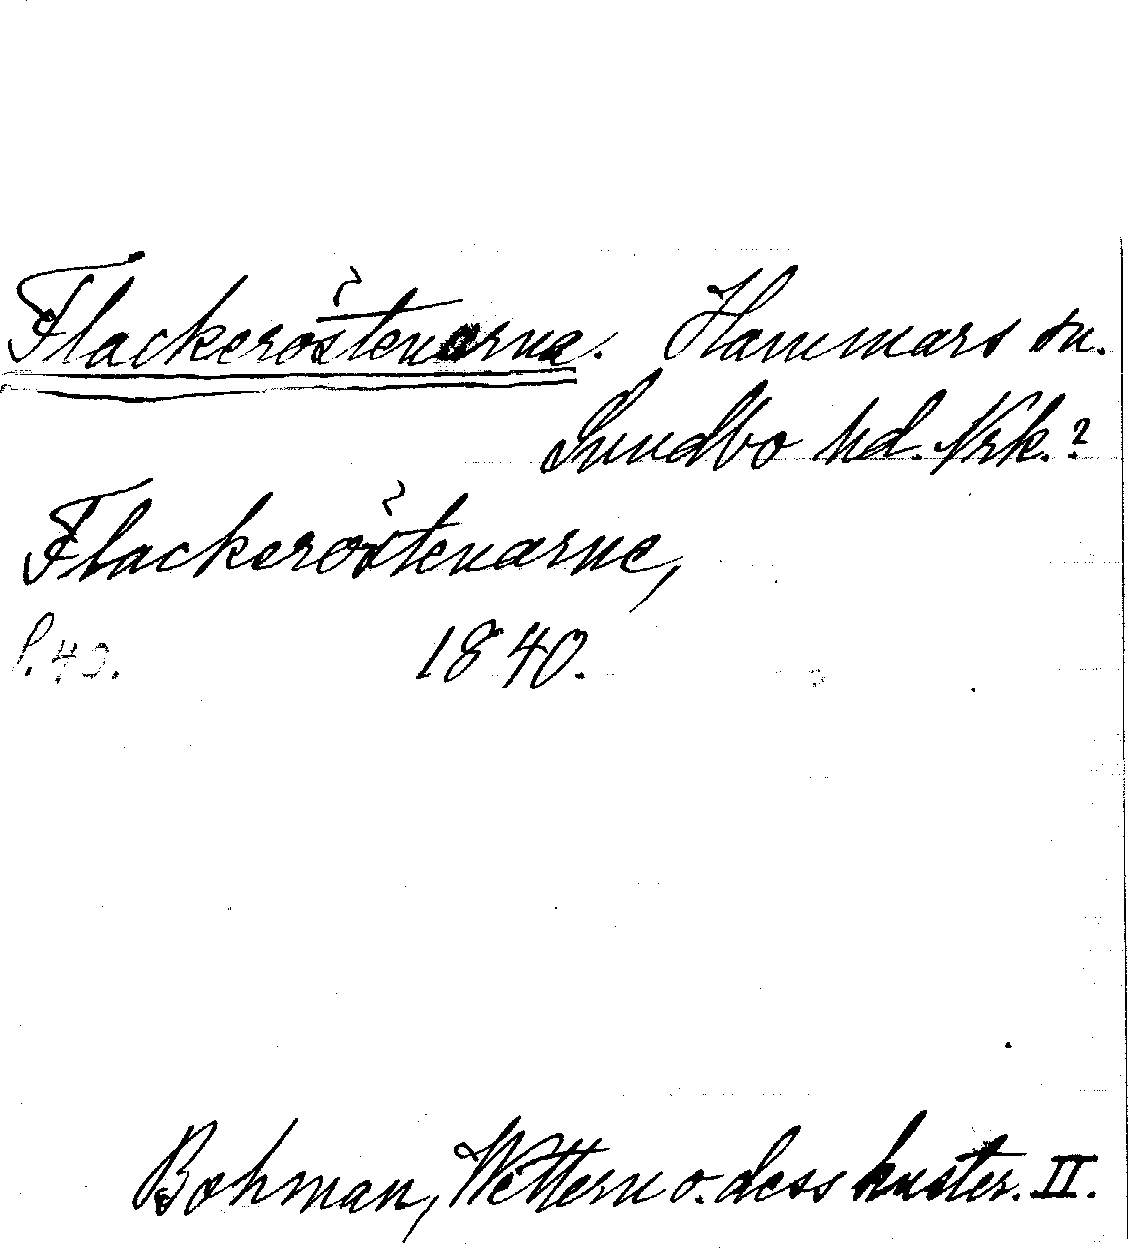 Flackeröstenarna. Hammars sn.
Sundbo hd. Nrk.?
Flackeröstenarne,
P. 40. 1840.
Bohman, Wettern o. dess kuster. II.